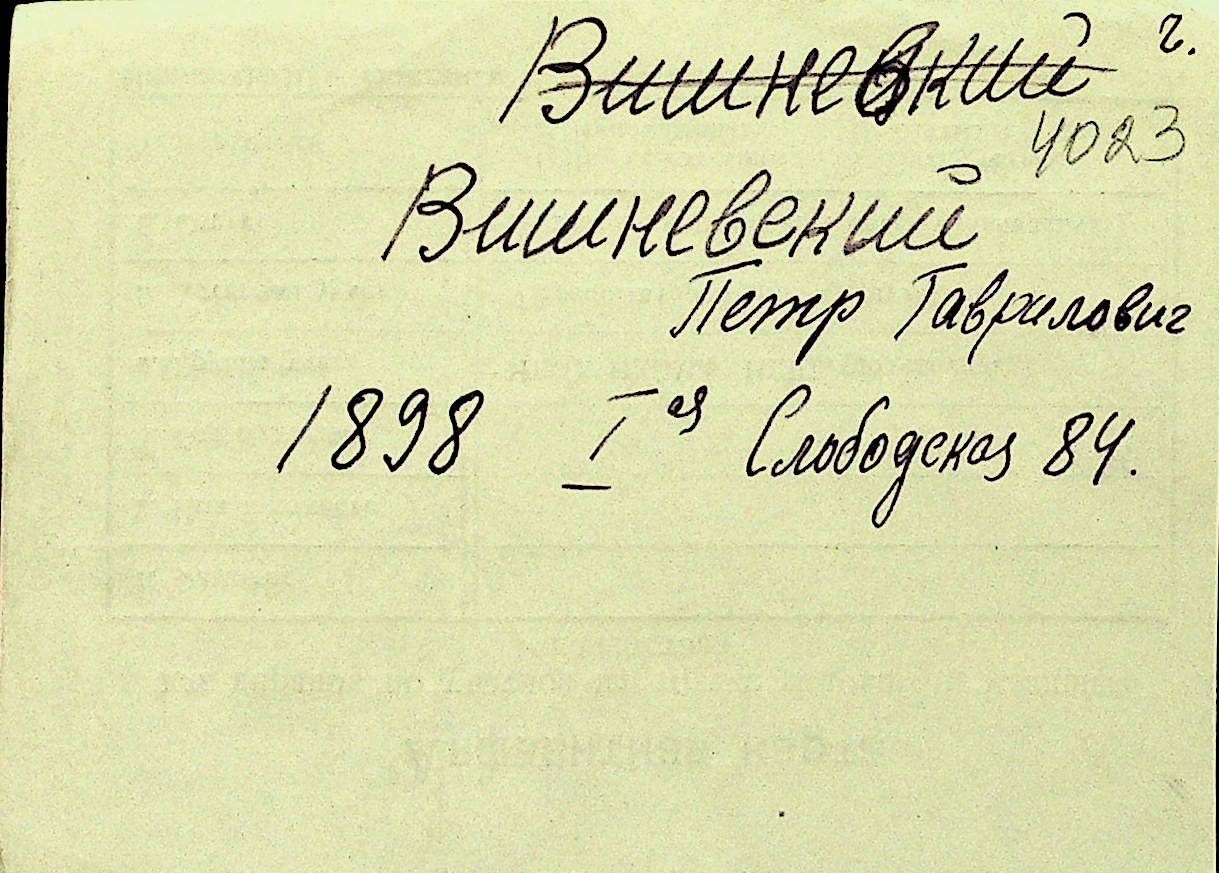 Вишневкий г.
4023
Вишневский
Петр Гаврилович
1898 Iая Слободская 84.